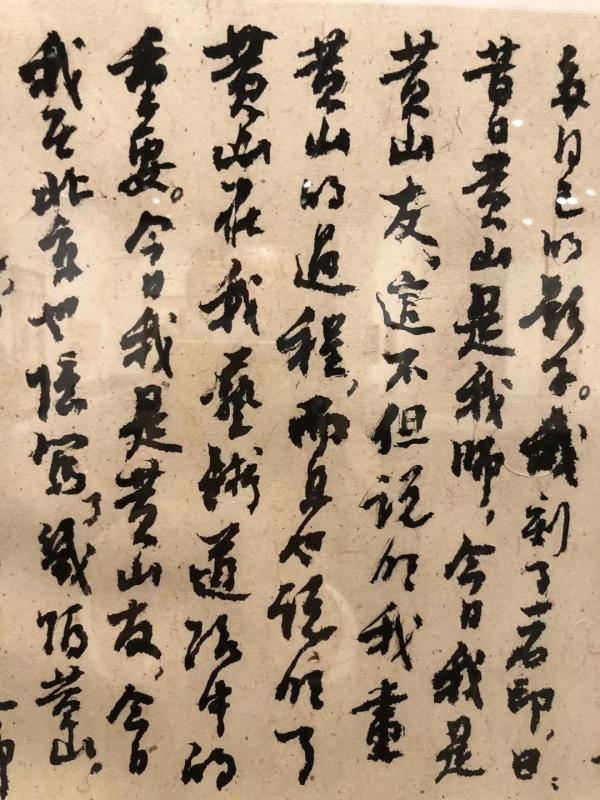 自己的影子。我刻了一石印，曰：
昔日黄山是我师，今日我是
黄山友，這不但说明我畫
黄山的過程，而且也说明了
黄山在我藝術道路中的
重要。今日我是黄山友，今日
我在北京也寫了幾黄山，